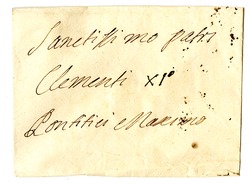 Sanctissimo patri
Clementi XIº
Pontifici Maximo